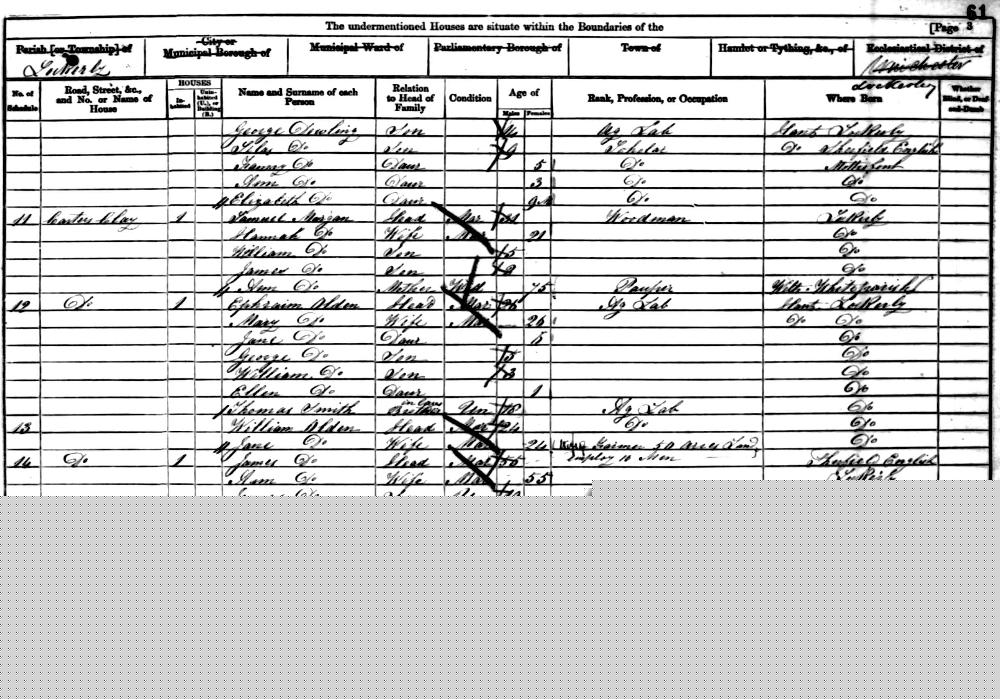 61
The undermentioned Houses are situate within the Boundaries of the
[Page 3
Parish [or Township] of
City or Municipal Borough of
Municipal Ward of
Parliamentary Borough of
Town of
Hamlet or Tything, &c., of
Ecclesiastical District of
Lockerly
Lockerley
No. of Schedule
Road, Street, &c., and No. or Name of House
HOUSES
In-habited
Unin-habited (U.), or Building (B.)
Name and Surname of each Person
Relation to Head of Family
Condition
Age of
Males
Females
Rank, Profession, or Occupation
Where Born
Whether Blind, or Deaf-and-Dumb
George Son Ag Lab Hants Lockerly
Silas Do Son 9 Scholar Do Sherfield English
Fanny Do Daur 5 Do Mottisfont
Ann Do Daur 3 Do Do
Elizabeth Do Daur 9 M Do Do
11 Carters Clay 1 Samuel Morgan Head Mar Woodman Lockerly
Hannah Do Wife Mar 21 Do
William Do Son 5 Do
James Do Son Do
Ann Do Mother Wid 75 Pauper Wilts Whiteparish
12 Do 1 Ephraim Alden Head Mar Ag Lab Hants Lockerly
Mary Do Wife Mar 26 Do Do
Jane Do Daur 5 Do
George Do Son 5 Do
William Do Son 3 Do
Ellen Do Daur 1 Do
Thomas Smith Brother in Law Un 18 Ag Lab Do
13 William Alden Head Mar 24 Do Do
Jane Do Wife Mar 24 Do
Farmer 50 Acres Land
14 Do 1 James Do Head Mar 55 Employ 10 Men Sherfield English
Ann Do Wife Mar 55 Lockerly